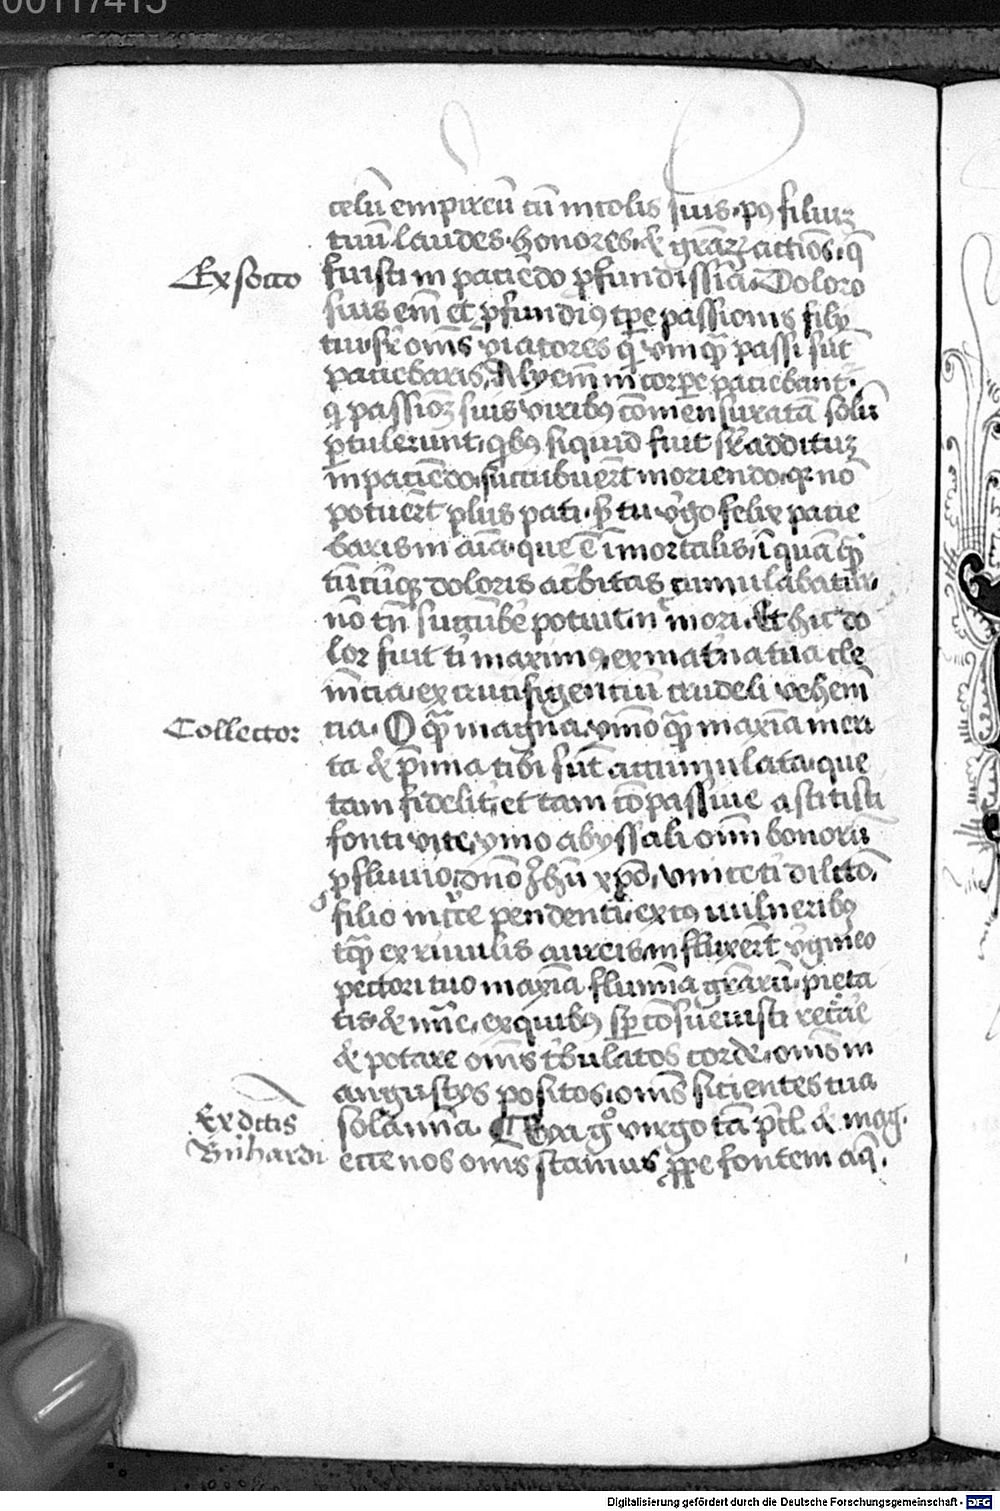 00117415
celū empireū cū incolis suis. pꝰ filiuꝫ
tuū. laudes. honores. & gr̄aꝝ actiōs. q̄
Ex socco
fuisti in paciēdo ꝓfundissīa. Doloro
sius em̄ et ꝓfundiꝰ tp̄e passionis filij
tui sr̄ om̄s viatores passi sūt
paciebaris. Alij em̄ in corꝑe paciebant.
q passioēꝫ suis viribꝰ cōmensuratā solū
ꝑtulerunt. qibꝰ siquid fuit sr̄ additūꝫ
in paciēdo. succubuer̄t moriendo. qꝛ nō
potuer̄t plus pati. s̄ tu v̓go felix pacie
baris in aīa. que ē īmortalis. ī quā
doloris ac̓bitas cumulabatur.
nō tn̄ succūbe̓ potuit. n̄ mori. Et hic do
lor fuit ti maximꝰ. ex mat̓na tua cle
mēcia. ex crucifigentiū crudeli vehemē
Collector
cia. O qͣꝫ magna. ymo qͣꝫ maxīa meri
ta & p̄mia tibi sūt accumulata. que
tam fidelit̓. et tam cōpassiue astitisti
fonti vite. ymo abyssali oīm bonorū
ꝓfluuio. dn̄o Jhū xp̄o. vnice ti dilcō.
filio in cͬce pendenti. ex cꝰ uulneribꝰ
tqͣꝫ ex riuulis aureis. influxer̄t v̓gineo
pectori tuo maxīa flumīa gr̄arū. pieta
tis. & mīe. ex quibꝰ sp̄ cōsueuisti rec̓are
& potare om̄s t̓bulatos corde. om̄s in
angustijs positos. om̄s sicientes tua
Ex dictis
solamīa. Eya g̊ virgo tā &
Bn̄hardi
ecce nos om̄s stamus ꝓpe fontem aq̄.
Digitalisierung gefördert durch die Deutsche Forschungsgemeinschaft - DFG